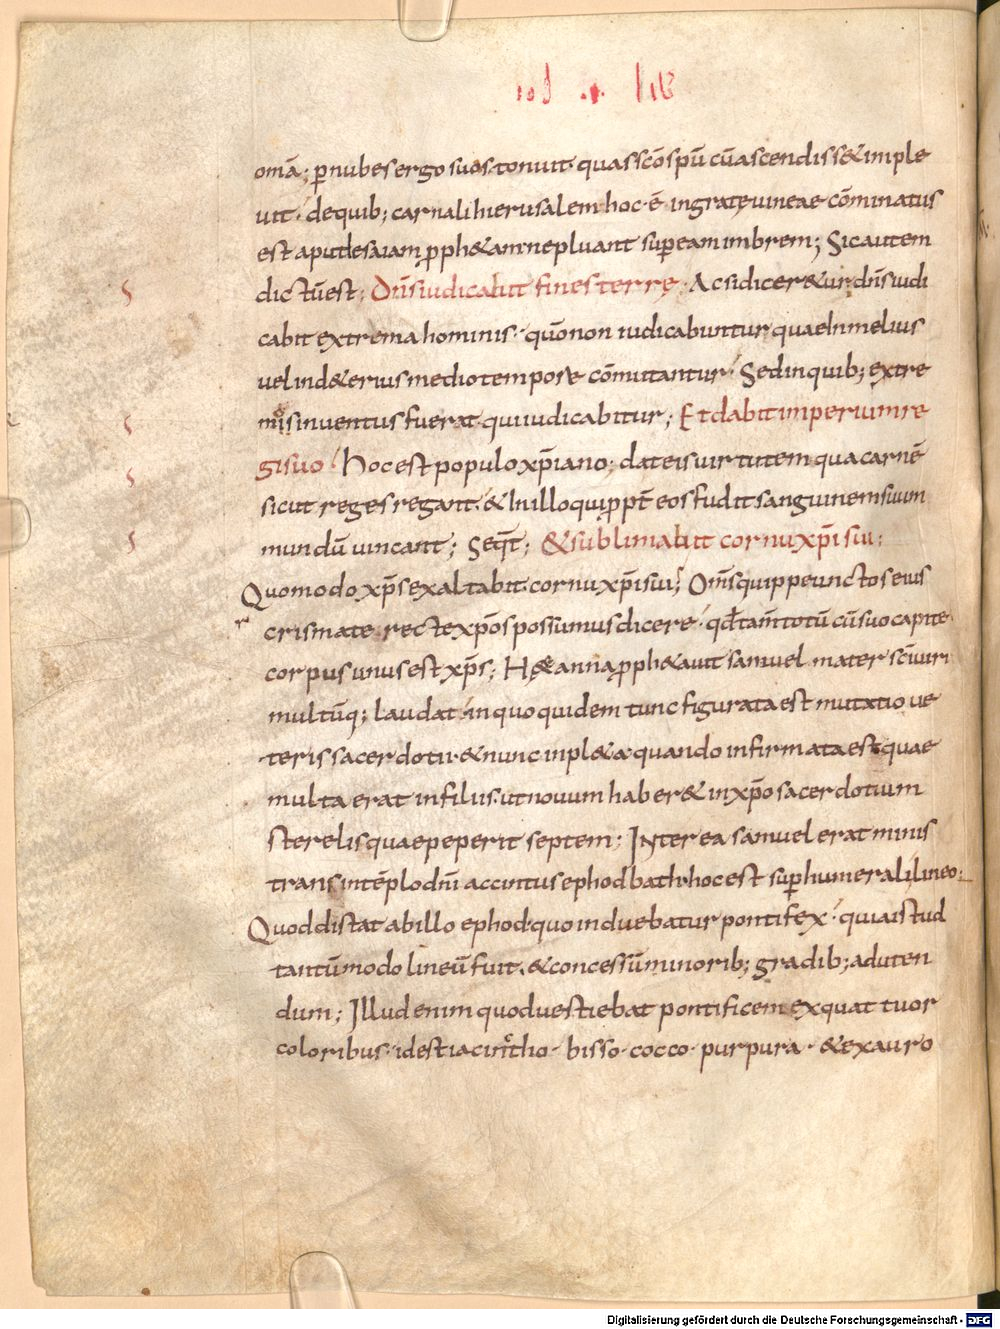 omā; ꝑ nubes ergo suas tonuit quas scōs pū cū ascendiss& imple
uit. de quib; carnali hierusalem hoc ē ingratę uineae cōminatus
est aput esaiam ꝓph&am ne pluant sup eam imbrem; Sic autem
dictū est; Dn̄s iudicabit fines terrę. Ac si dicer&ur dn̄s iudi
cabit extrema hominis. quō non iudicabuntur quae in melius
uel in d&erius medio tempore cōmutantur. Sed in quib; extre
mis inuentus fuerat. qui iudicabitur; Et dabit imperium re
gi suo. hoc est populo xp̄iano; dat eis uirtutem qua carnē
sicut reges regant. & in illo qui ꝓpt̄ eos fudit sanguinem suum
mundū uincant; Seqt̄; & sublimabit cornu xp̄i sui;
Quomodo xp̄s exaltabit cornu xp̄i sui; Om̄s quippe unctos eius
crismate recte xp̄os possumus dicere. qđ tam̄ totū cū suo capite
corpus unus est xp̄s; H& anna ꝓph&auit samuel mater sc̄i uiri
multūq; laudati in quo quidem tunc figurata est mutatio ue
teris sacerdotii & nunc inpl&a quando infirmata est quae
multa erat in filiis. ut nouum haber& in xp̄o sacerdotium
sterelis quae peperit septem; INterea samuel erat minis
trans in tēplo dn̄i accintus ephod bath. hoc est suphumerali lineo;
Quod distat ab illo ephod. quo induebatur pontifex. quia istud
tantūmodo lineū fuit. & concessū minorib; gradib; ad uten
dum; Illud enim quod uestiebat pontificem ex quattuor
coloribus. id est iacintho. bisso. cocco. purpura. & ex auro
Digitalisierung gefördert durch die Deutsche Forschungsgemeinschaft - DFG